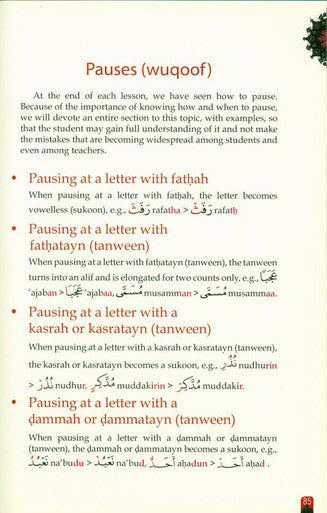 Pauses (wuqoof)
At the end of each lesson, we have seen how to pause.
Because of the importance of knowing how and when to pause,
we will devote an entire section to this topic, with examples, so
that the student may gain full understanding of it and not make
the mistakes that are becoming widespread among students and
even among teachers.
• Pausing at a letter with fatḥah
When pausing at a letter with fatḥah, the letter becomes
vowelless (sukoon), e.g., رَفَثَ rafatha > رَفَثْ rafatḥ
• Pausing at a letter with
fatḥatayn (tanween)
When pausing at a letter with fatḥatayn (tanween), the tanween
turns into an alif and is elongated for two counts only, e.g., عَجَبًا
‘ajaban > عَجَبَا ‘ajabaa, مُسَمًّى musamman > مُسَمَّى musammaa.
• Pausing at a letter with a
kasrah or kasratayn (tanween)
When pausing at a letter with a kasrah or kasratayn (tanween),
the kasrah or kasratayn becomes a sukoon, e.g., نُذُرٍ nudhurin
> نُذُرْ nudhur, مُدَّكِرٍ muddakirin > مُدَّكِرْ muddakir.
• Pausing at a letter with a
ḍammah or ḍammatayn (tanween)
When pausing at a letter with a ḍammah or ḍammatayn
(tanween), the ḍammah or ḍammatayn becomes a sukoon, e.g.,
نَعْبُدُ na‘budu > نَعْبُدْ na‘bud, أَحَدٌ aḥadun > أَحَدْ aḥad .
85